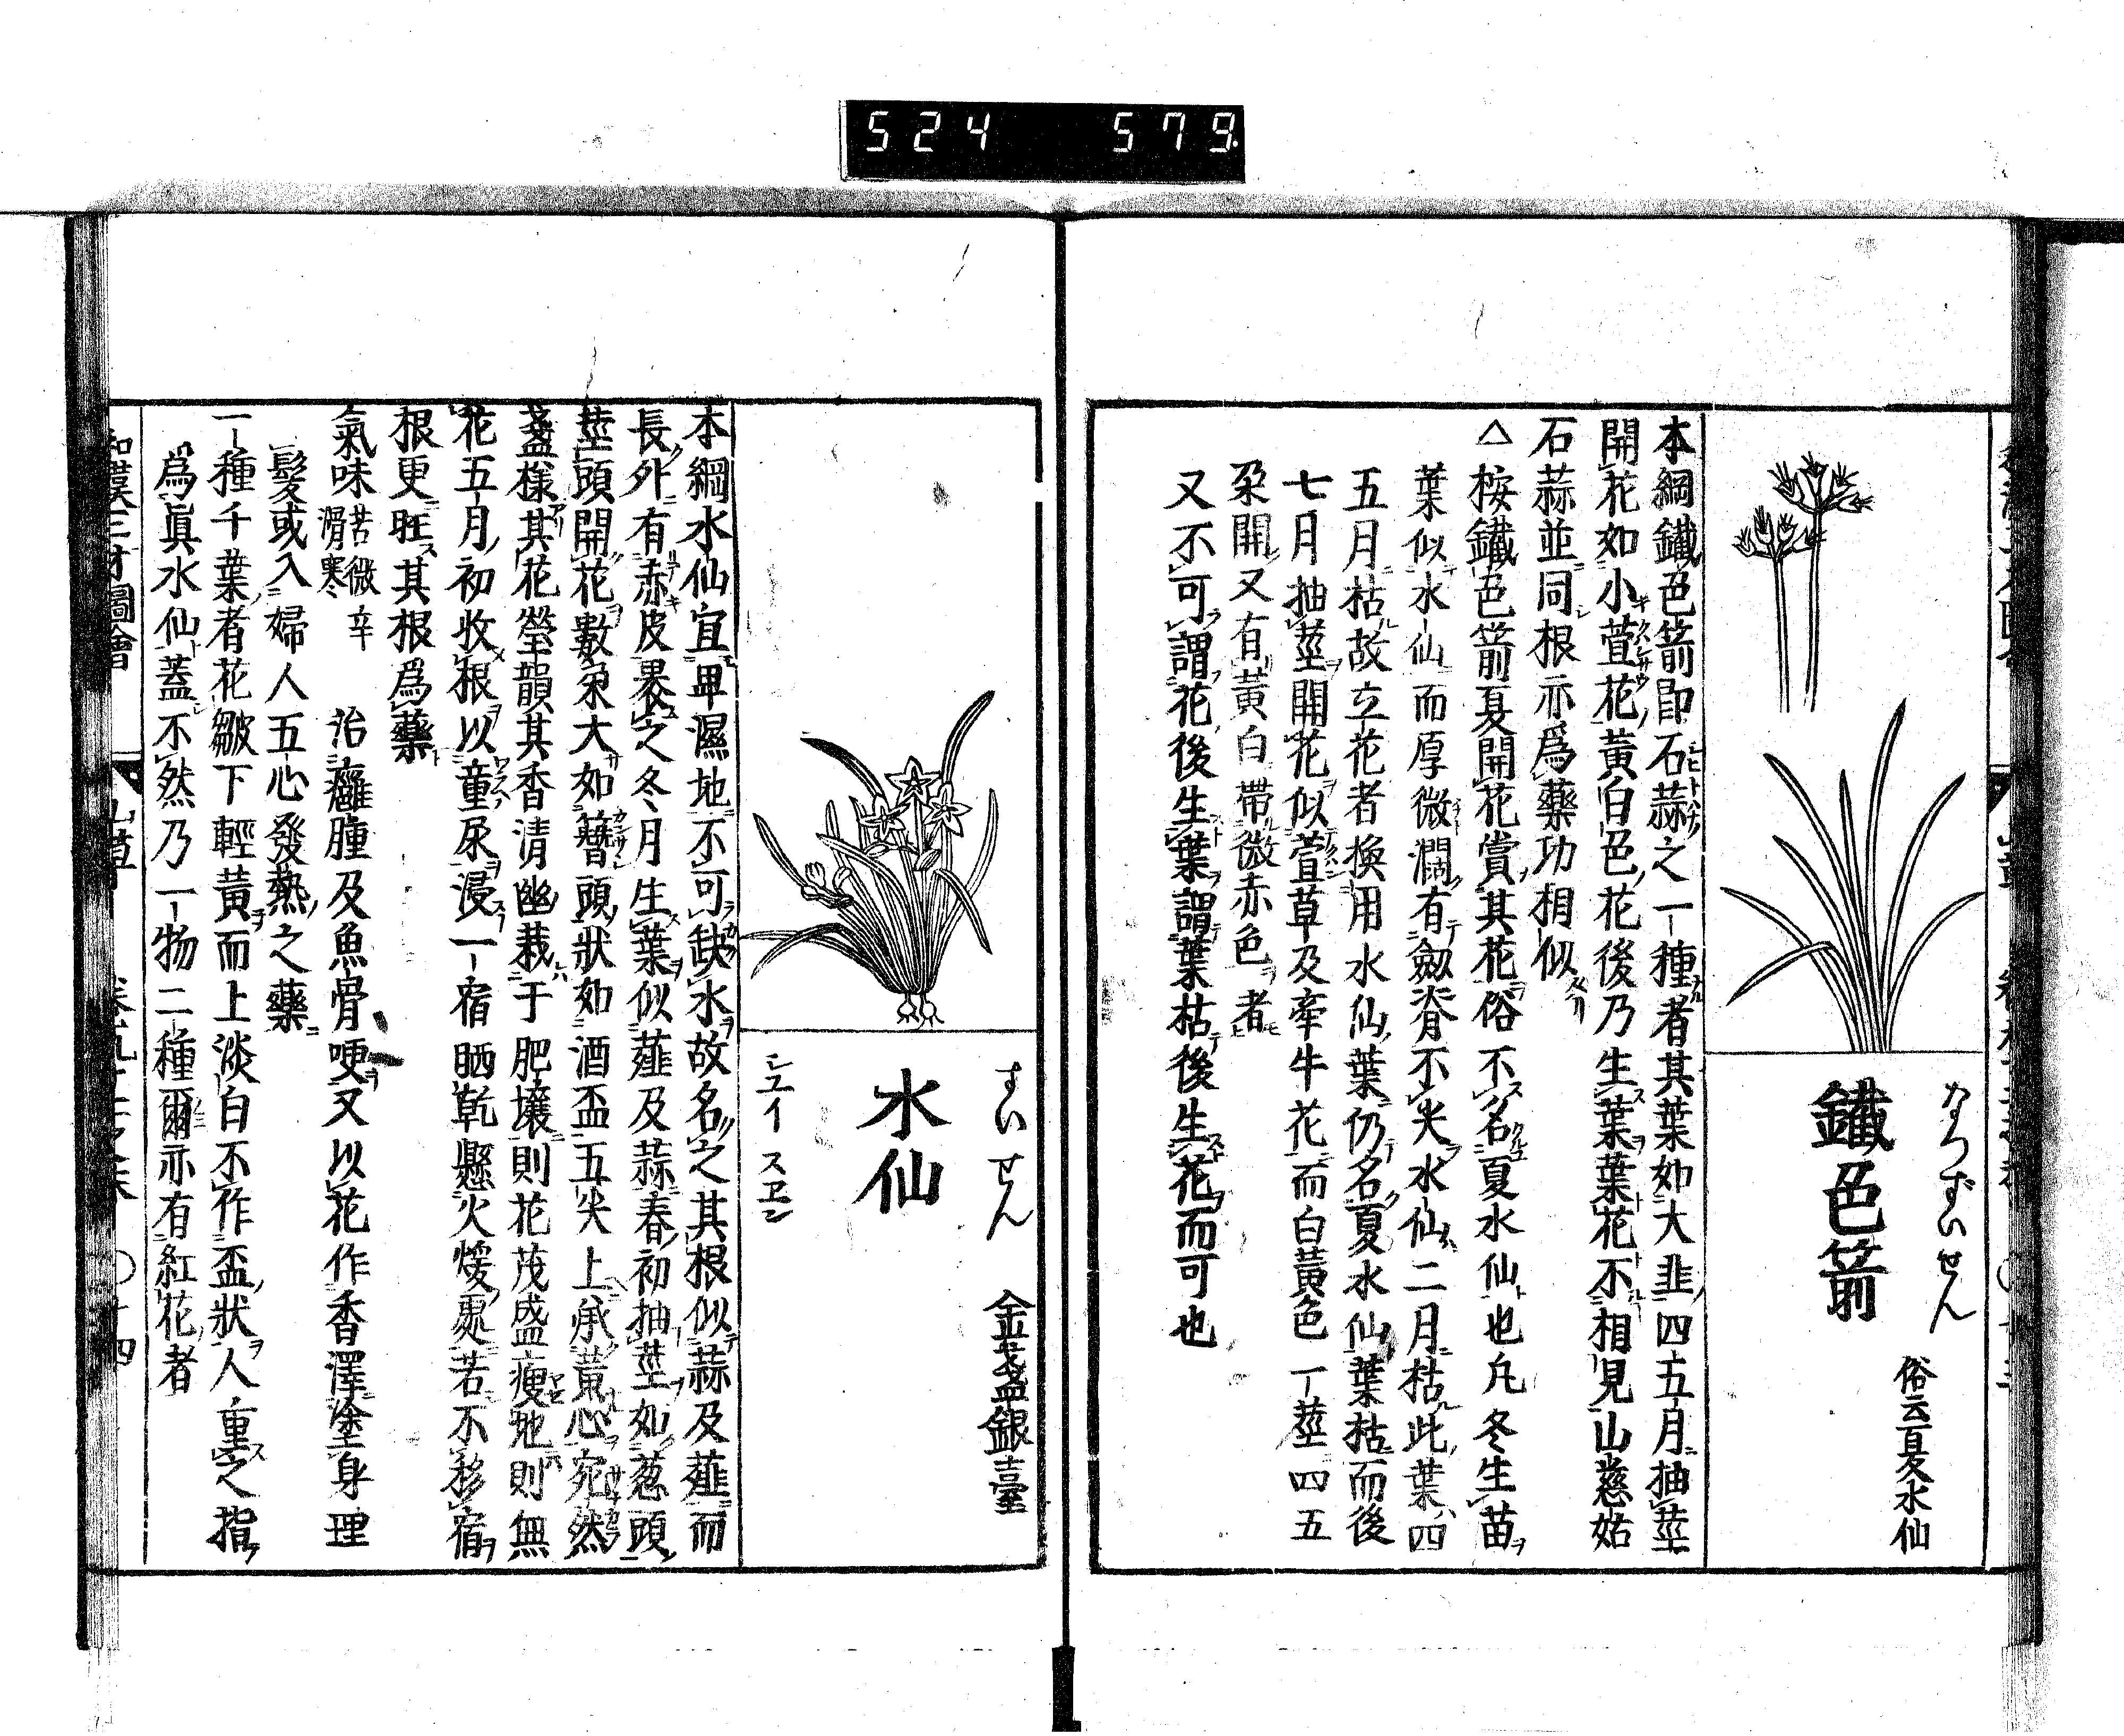 524 579.
なつずいせん
俗云夏水仙
鐵色箭
本綱鐵色箭即石蒜之一種者其葉如大韭四五月抽莖
開花如小萱花黃白色花後乃生葉葉花不相見山慈姑
石蒜並同根亦爲藥功相似
△桉鐵色箭夏開花賞其花俗不名夏水仙也凡冬生苗
葉似水仙而厚微濶有劔脊不尖水仙二月枯此葉四
五月枯故立花者換用水仙葉仍名夏水仙葉枯而後
七月抽莖開花似萱草及牽牛花而白黃色一莖四五
朶開又有黃白帶微赤色者
又不可謂花後生葉謂葉枯後生花而可也
すいせん
金盞銀臺
水仙
シユイ スヱン
本綱水仙宜卑濕地不可缺水故名之其根似蒜及薤而
長外有赤皮裹之冬月生葉似薤及蒜春初抽莖如葱頭
莖頭開花數朶大如簪頭狀如酒盃五尖上承黃心宛然
盞樣其花瑩韻其香清幽栽于肥壤則花茂盛瘦地則無
花五月初收根以童尿浸一宿晒乾懸火煖處若不移宿
根更旺其根爲藥
氣味苦微辛滑寒 治癰腫及魚骨哽又以花作香澤塗身理
髮或入婦人五心發熱之藥
一種千葉者花皺下輕黃而上淡白不作盃狀人重之指
爲眞水仙蓋不然乃一物二種爾亦有紅花者
和漢三才圖會